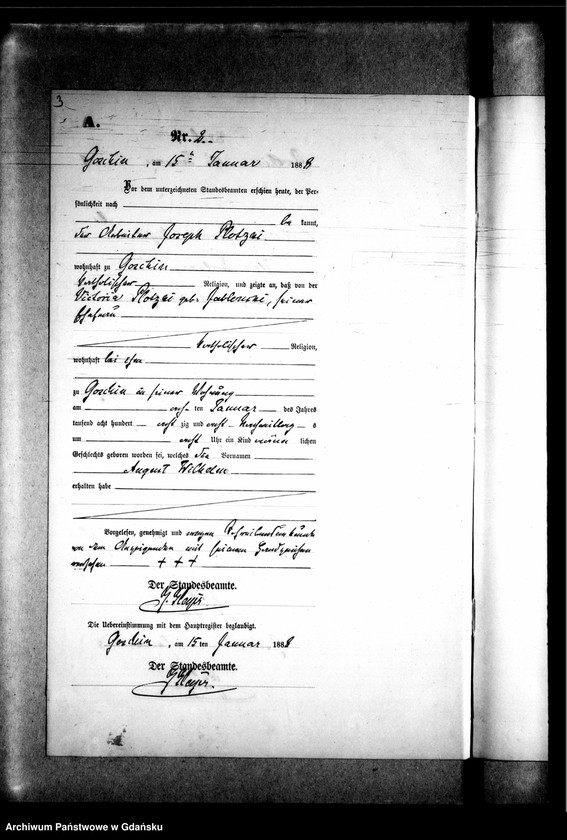 3
A.
Nr. 2.
Goschin, am 15 ten Januar 1888
Vor dem unterzeichneten Standesbeamten erschien heute, der Per-
sönlichkeit nach
be kannt,
der Arbeiter Joseph Plotzki
wohnhaft zu Goschin
katholischer Religion, und zeigte an, daß von der
Victoria Plotzki geb. Jablonski, seiner
Ehefrau
katholischer Religion,
wohnhaft bei ihm
zu Goschin in seiner Wohnung
am acht ten Januar des Jahres
tausend acht hundert acht zig und acht Nachmittag s
um acht Uhr ein Kind männ lichen
Geschlechts geboren worden sei, welches die Vornamen
August Wilhelm
erhalten habe
Vorgelesen, genehmigt und wegen Schreibensunkunde
von dem Anzeigenden mit seinem Handzeichen
versehen + + +
Der Standesbeamte.
Die Uebereinstimmung mit dem Hauptregister beglaubigt.
Goschin, am 15 ten Januar 1888
Der Standesbeamte.
Archiwum Państwowe w Gdańsku